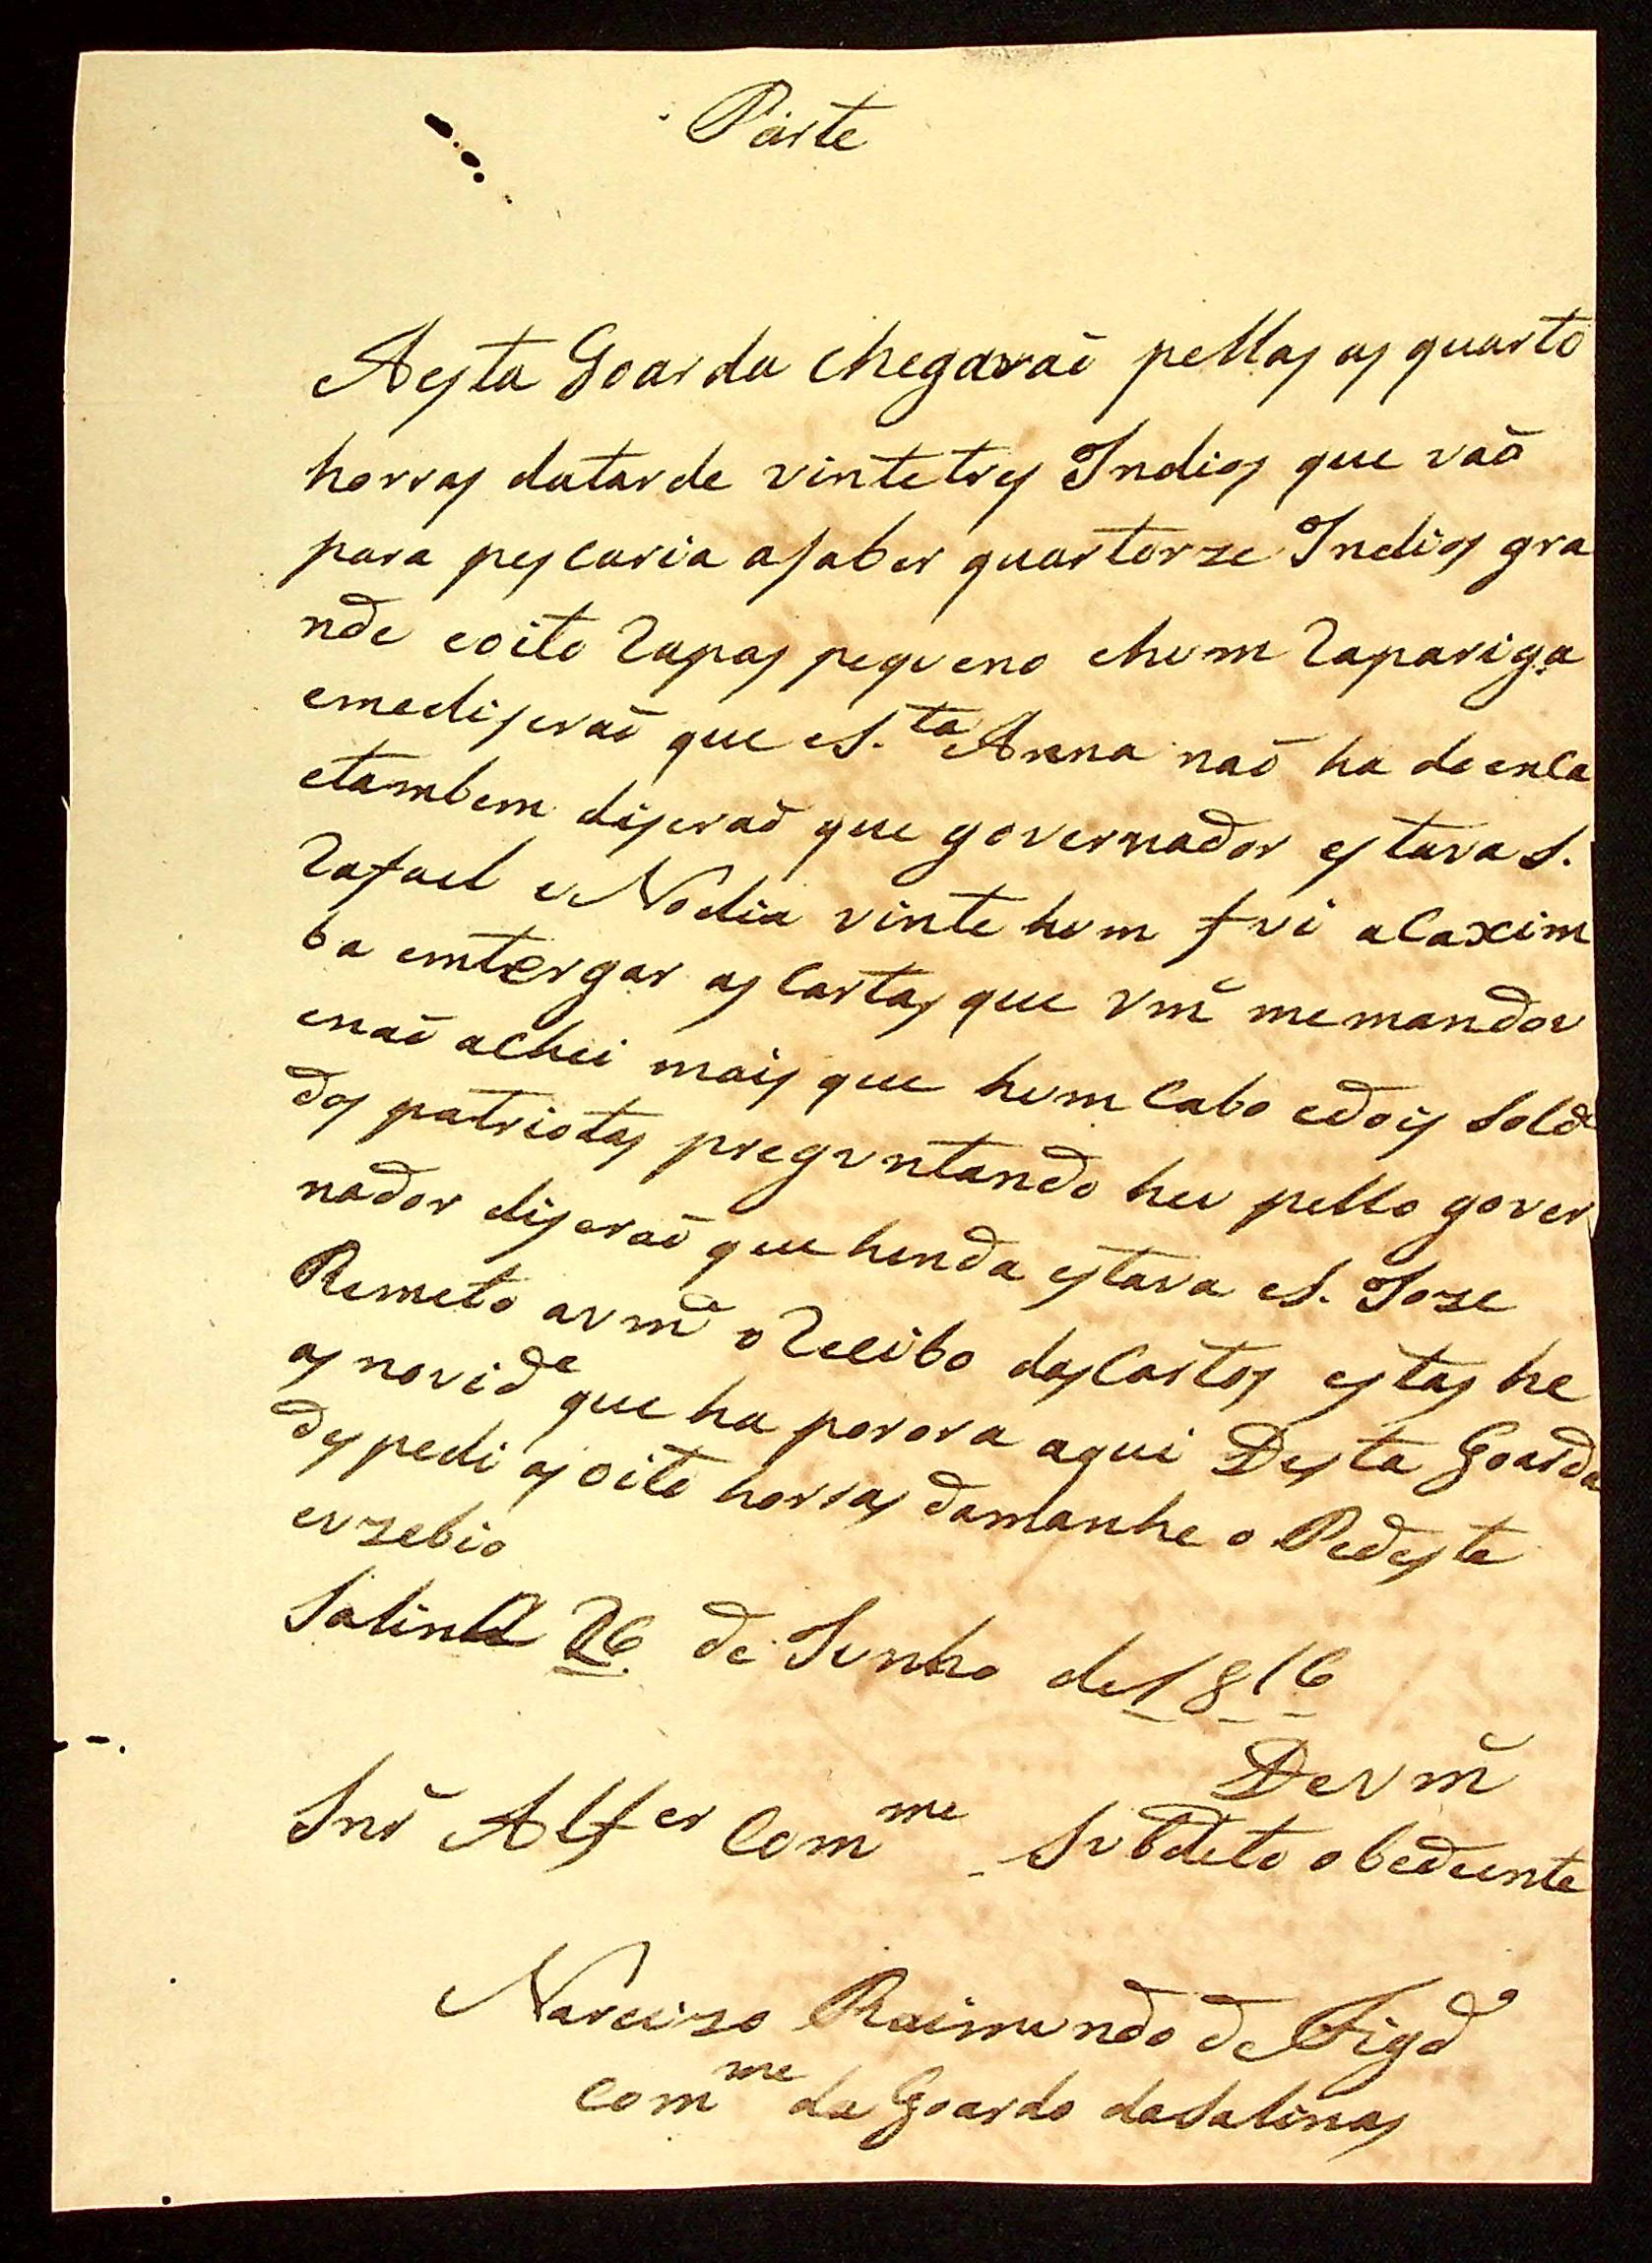 Parte
Aesta Goarda chegaraõ pellas as quarto
horras datarde vintetres Indios que vaõ
para pescaria asaber quartorze Indios gra
nde eoito Rapas pequeno ehum Rapariga
emediseraõ que eS.ta Anna naõ ha doenca
etambem diseraõ que governador estava S.
Rafael e Nodia vinte hum fui aCaxim
ba emtergar as Cartas que Vm.ce memandou
enaõ achei mais que hum Cabo edois Sold.
dos patriotas preguntando heu pello gover
nador diseraõ que henda estava eS. Joze
Remeto avm.ce o Recibo dasCartas estas he
as novid.e que ha porora aqui Desta Goarda
despedi as oito horras damanhe o Pedeste
euzebio
Salina 26 de Junho de 1816
Devm.ce
Snr Alf.er Com.me Subdeto obediente
Narcizo Raimundo de Figd.o
Com.me da Goarda daSalinas